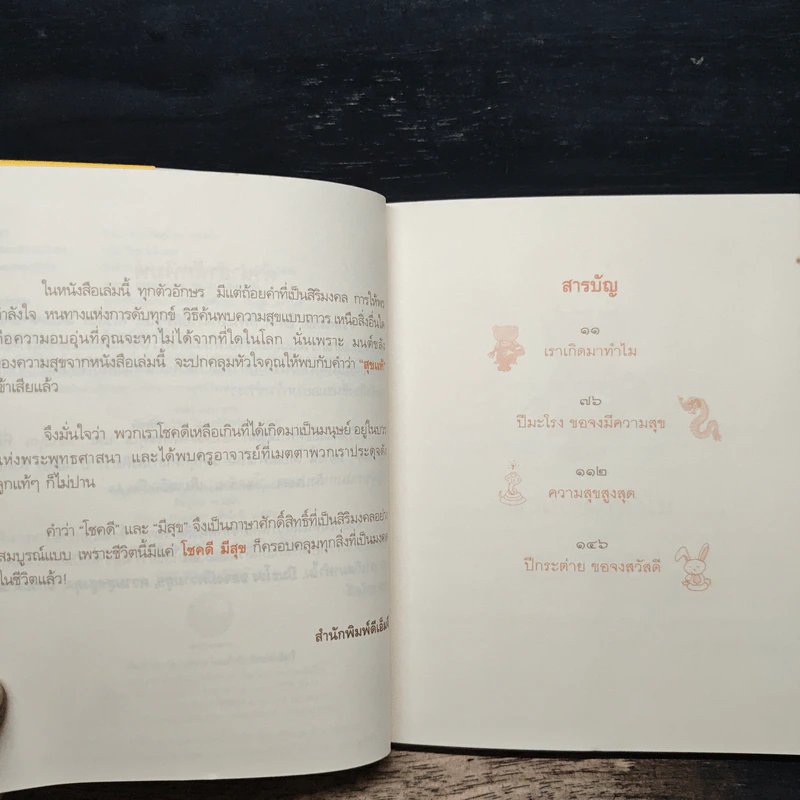 ในหนังสือเล่มนี้ ทุกตัวอักษร มีแต่ถ้อยคำที่เป็นสิริมงคล การให้พร
กำลังใจ หนทางแห่งการดับทุกข์ วิธีค้นพบความสุขแบบถาวร เหนือสิ่งอื่นใด
คือความอบอุ่นที่คุณจะหาไม่ได้จากที่ใดในโลก นั่นเพราะ มนต์ขลัง
ของความสุขจากหนังสือเล่มนี้ จะปกคลุมหัวใจคุณให้พบกับคำว่า "สุขแท้"
เข้าเสียแล้ว
จึงมั่นใจว่า พวกเราโชคดีเหลือเกินที่ได้เกิดมาเป็นมนุษย์ อยู่ในบวร
แห่งพระพุทธศาสนา และได้พบครูอาจารย์ที่เมตตาพวกเราประดุจดัง
ลูกแท้ๆ ก็ไม่ปาน
คำว่า "โชคดี" และ "มีสุข" จึงเป็นภาษาศักดิ์สิทธิ์ที่เป็นสิริมงคลอย่าง
สมบูรณ์แบบ เพราะชีวิตนี้มีแค่ โชคดี มีสุข ก็ครอบคลุมทุกสิ่งที่เป็นมงคล
ในชีวิตแล้ว!
สำนักพิมพ์ดีเอ็มจี
สารบัญ
๑๑
เราเกิดมาทำไม
๗๖
ปีมะโรง ขอจงมีความสุข
๑๑๒
ความสุขสูงสุด
๑๔๖
ปีกระต่าย ขอจงสวัสดี